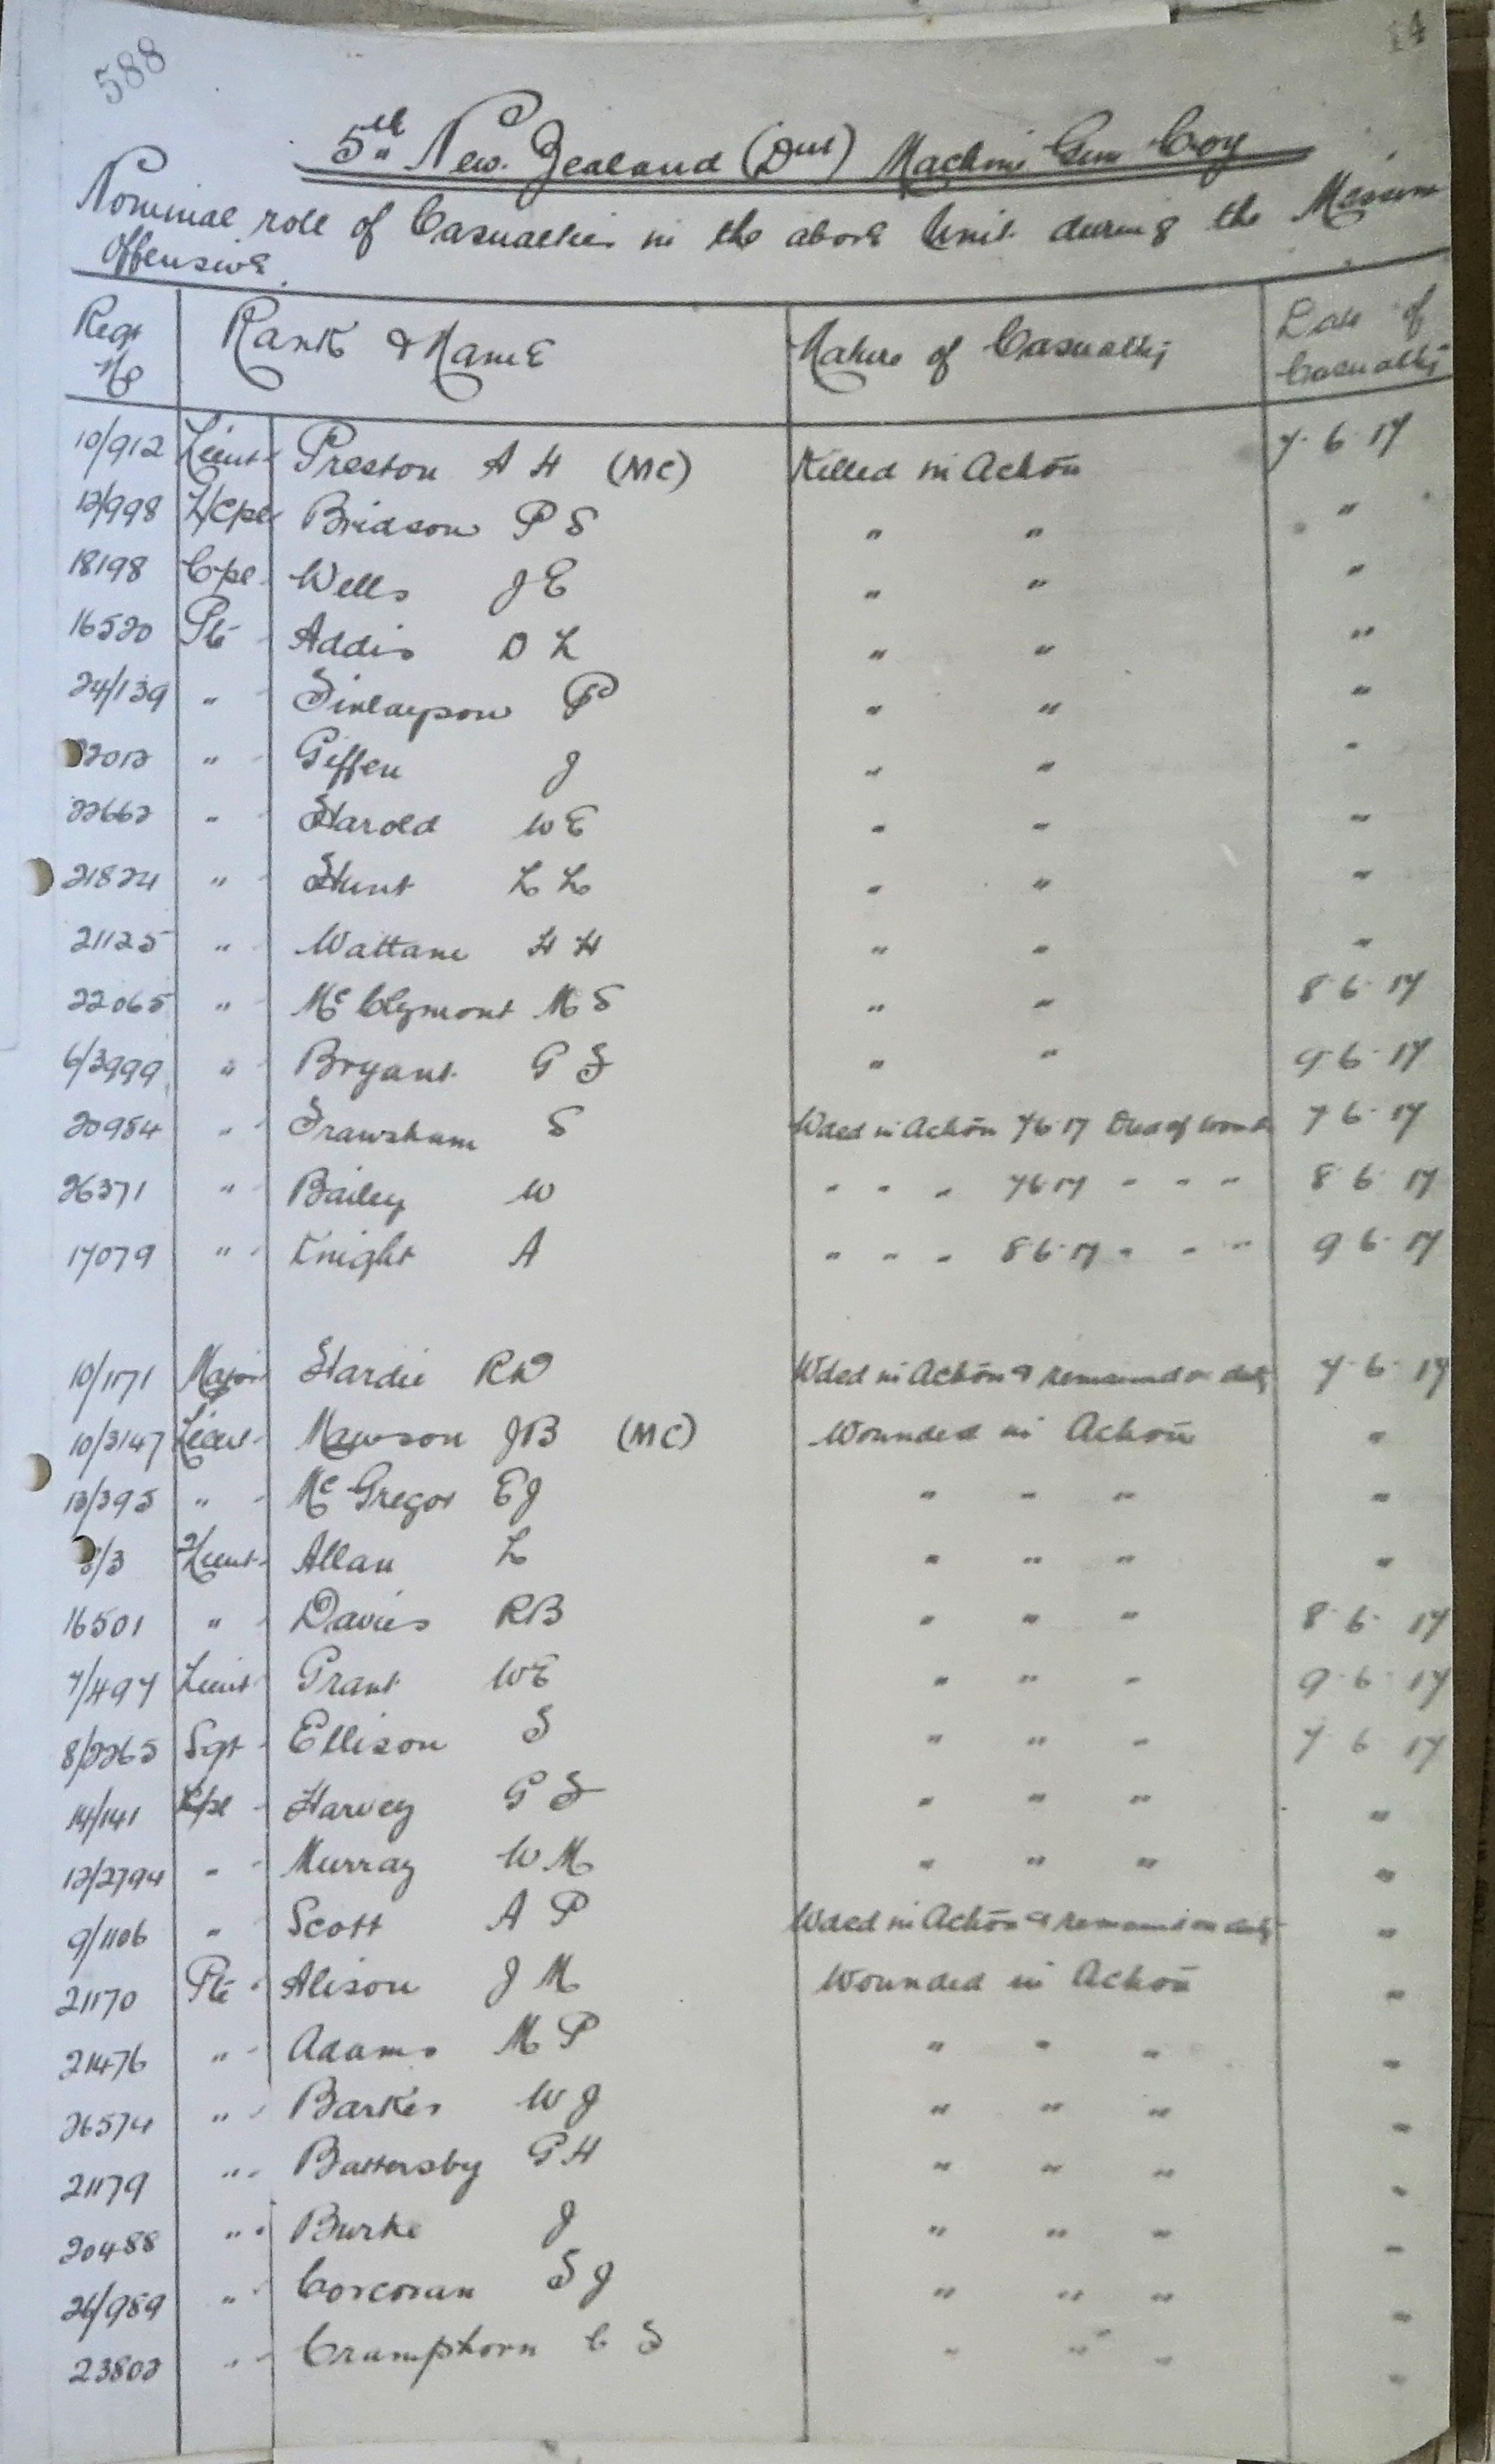 588
14
5th New Zealand (Div) Machine Gun Coy
Nominal roll of Casualties in the above Unit during the Messines
Offensive.
Regt No | Rank & Name | Nature of Casualty | Date of Casualty
10/912 Lieut Preston A H (MC) Killed in Action 7.6.17
12/998 L/Cpl Bridson P S " " "
18198 Cpl Wells J E " " "
16520 Pte Addis D L " " "
24/139 " Finlayson P " " "
22012 " Giffen J " " "
22662 " Harold W E " " "
21824 " Hunt L L " " "
21125 " Wattam H H " " "
22065 " McClymont M S " " 8.6.17
6/3999 " Bryant G F " " 9.6.17
20984 " Frawsham S Wded in Action 7.6.17 Died of wounds 7.6.17
26371 " Bailey W " " " 7.6.17 " " " 8.6.17
17079 " Knight A " " " 8.6.17 " " " 9.6.17
10/1171 Major Hardie R D Wded in Action & remained on duty 7.6.17
10/3147 Lieut Mawson J B (MC) Wounded in Action "
13/395 " McGregor E J " " " "
8/3 2/Lieut Allan L " " " "
16501 " Davies R B " " " 8.6.17
7/497 Lieut Grant W E " " " 9.6.17
8/2265 Sgt Ellison S " " " 7.6.17
14/141 Cpl Harvey G F " " " "
12/2794 " Murray W M " " " "
9/1106 " Scott A P Wded in Action & remained on duty "
21170 Pte Alison J M Wounded in Action "
21476 " Adams M P " " " "
26574 " Barker W J " " " "
21179 " Battersby G H " " " "
20488 " Burke J " " " "
26/989 " Corcoran F J " " " "
23802 " Cramphorn C F " " " "